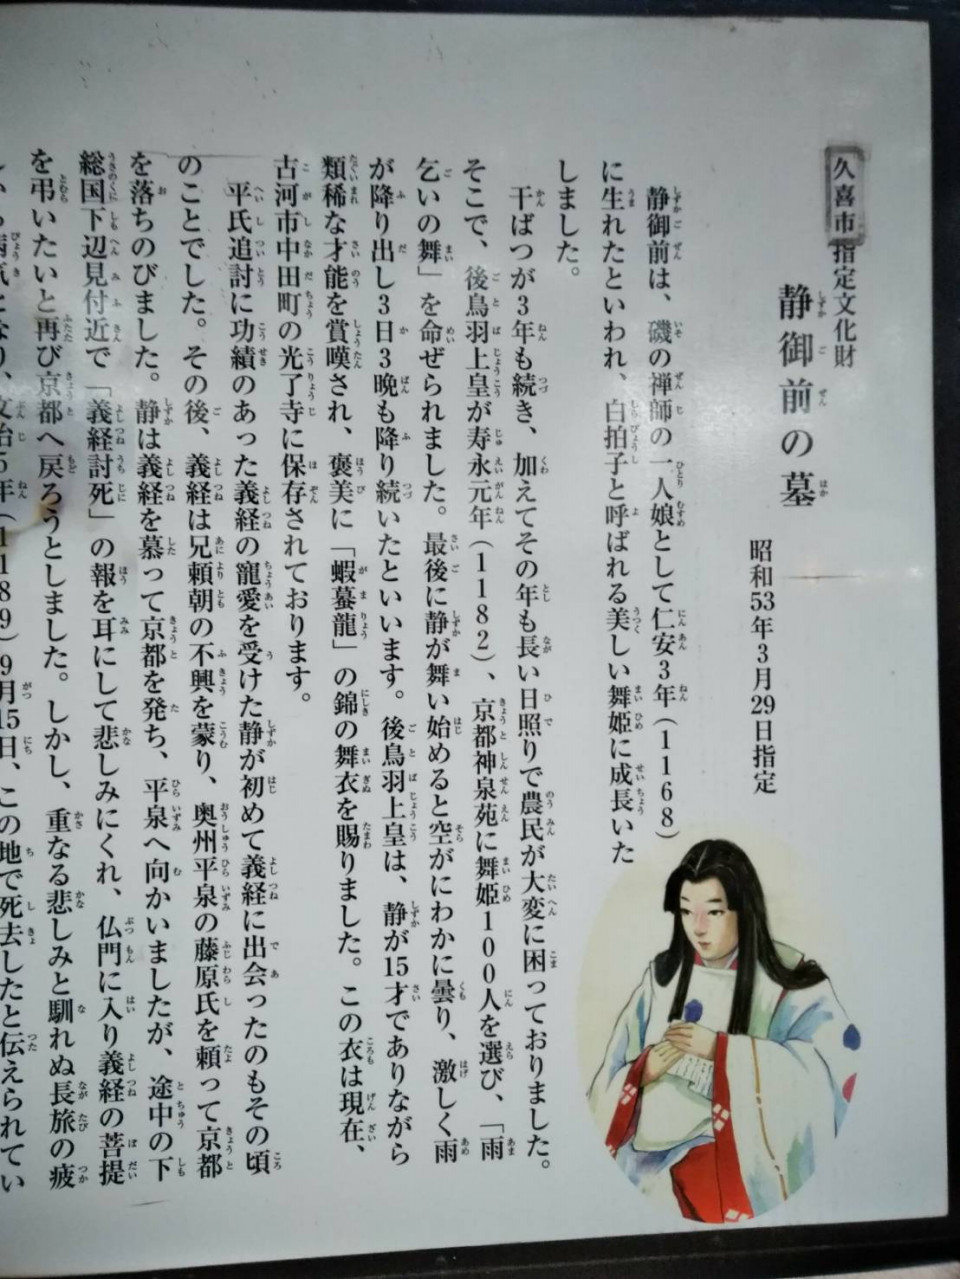 久喜市指定文化財
静御前の墓
しずかごぜん はか
昭和53年3月29日指定
静御前は、磯の禅師の一人娘として仁安3年(1168)
に生れたといわれ、白拍子と呼ばれる美しい舞姫に成長いた
しました。
干ばつが3年も続き、加えてその年も長い日照りで農民が大変に困っておりました。
そこで、後鳥羽上皇が寿永元年(1182)、京都神泉苑に舞姫100人を選び、「雨
乞いの舞」を命ぜられました。最後に静が舞い始めると空がにわかに曇り、激しく雨
が降り出し3日3晩も降り続いたといいます。後鳥羽上皇は、静が15才でありながら
類稀な才能を賞嘆され、褒美に「蝦蟇龍」の錦の舞衣を賜りました。この衣は現在、
古河市中田町の光了寺に保存されております。
平氏追討に功績のあった義経の寵愛を受けた静が初めて義経に出会ったのもその頃
のことでした。その後、義経は兄頼朝の不興を蒙り、奥州平泉の藤原氏を頼って京都
を落ちのびました。静は義経を慕って京都を発ち、平泉へ向かいましたが、途中の下
総国下辺見付近で「義経討死」の報を耳にして悲しみにくれ、仏門に入り義経の菩提
を弔いたいと再び京都へ戻ろうとしました。しかし、重なる悲しみと馴れぬ長旅の疲
病気となり、文治5年(1189)9月15日、この地で死去したと伝えられてい